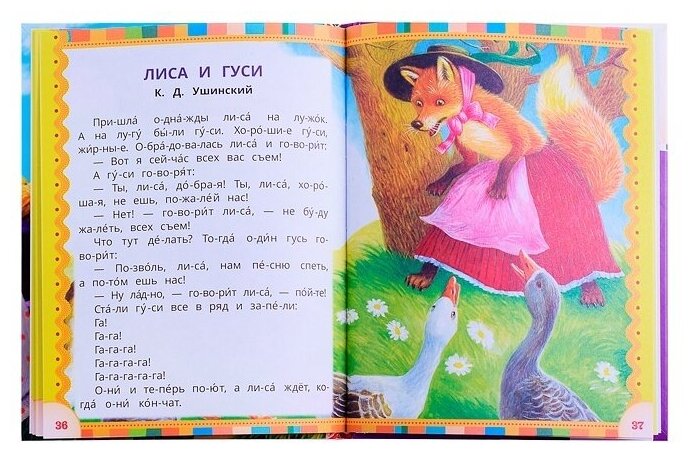 ЛИСА И ГУСИ
К. Д. Ушинский
При-шла́ о-дна́-жды ли-са́ на лу-жо́к.
А на лу-гу́ бы́-ли гу́-си. Хо-ро́-ши-е гу́-си,
жи́р-ны-е. О-бра́-до-ва-лась ли-са́ и го-во-ри́т:
— Вот я сей-ча́с всех вас съем!
А гу́-си го-во-ря́т:
— Ты, ли-са́, до́-бра-я! Ты, ли-са́, хо-ро́-
ша-я, не ешь, по-жа-ле́й нас!
— Нет! — го-во-ри́т ли-са́, — не бу́-ду
жа-ле́ть, всех съем!
Что тут де́-лать? То-гда́ о-ди́н гусь го-
во-ри́т:
— По-зво́ль, ли-са́, нам пе́-сню спеть,
а по-то́м ешь нас!
— Ну ла́д-но, — го-во-ри́т ли-са́, — по́й-те!
Ста́-ли гу́-си все в ряд и за-пе́-ли:
Га!
Га-га!
Га-га-га!
Га-га-га-га!
Га-га-га-га-га!
О-ни́ и те-пе́рь по-ю́т, а ли-са́ ждёт, ко-
гда́ о-ни́ ко́н-чат.
36
37